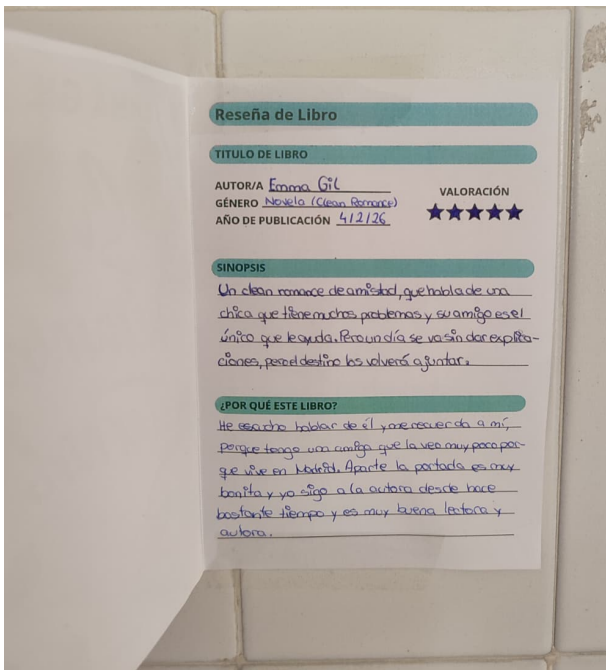 Reseña de Libro
TITULO DE LIBRO
AUTOR/A Emma Gil
GÉNERO Novela (Clean Romance)
AÑO DE PUBLICACIÓN 4/2/26
VALORACIÓN
SINOPSIS
Un clean romance de amistad, que habla de una
chica que tiene muchos problemas y su amigo es el
único que le ayuda. Pero un día se va sin dar explica-
ciones, pero el destino los volverá a juntar.
¿POR QUÉ ESTE LIBRO?
He escucho hablar de él y me recuerda a mí,
porque tengo una amiga que la veo muy poco por-
que vive en Madrid. Aparte la portada es muy
bonita y yo sigo a la autora desde hace
bastante tiempo y es muy buena lectora y
autora.